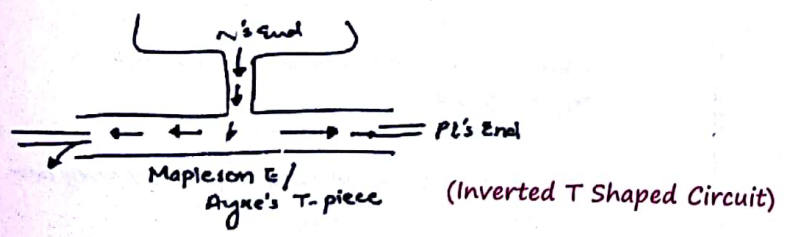 N's End
Pt's End
Mapleson E/
Ayre's T-piece
(Inverted T Shaped Circuit)